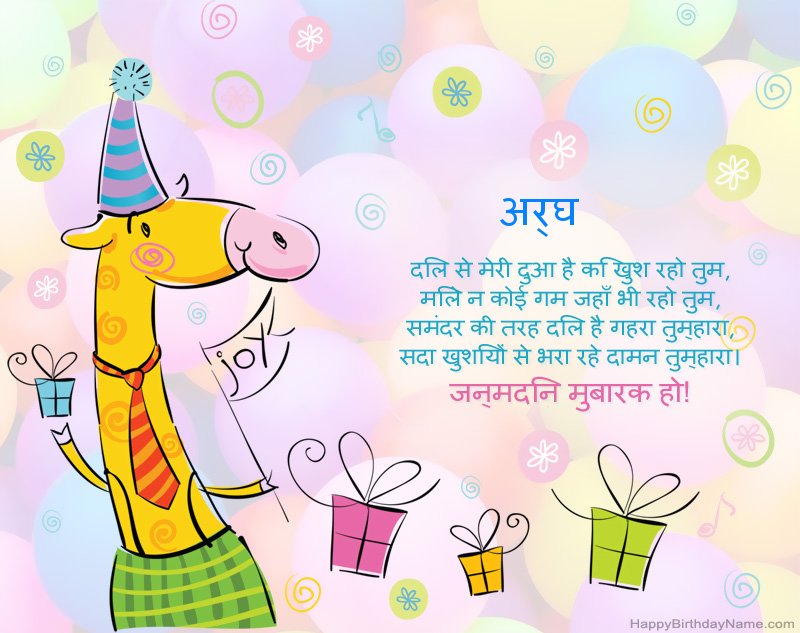 अर्घ
दिल से मेरी दुआ है कि खुश रहो तुम,
मिले न कोई गम जहाँ भी रहो तुम,
समंदर की तरह दिल है गहरा तुम्हारा,
सदा खुशियों से भरा रहे दामन तुम्हारा।
जन्मदिन मुबारक हो!
joy
HappyBirthdayName.com